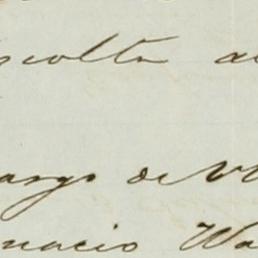 escolta a
argo de V
nacio Wa